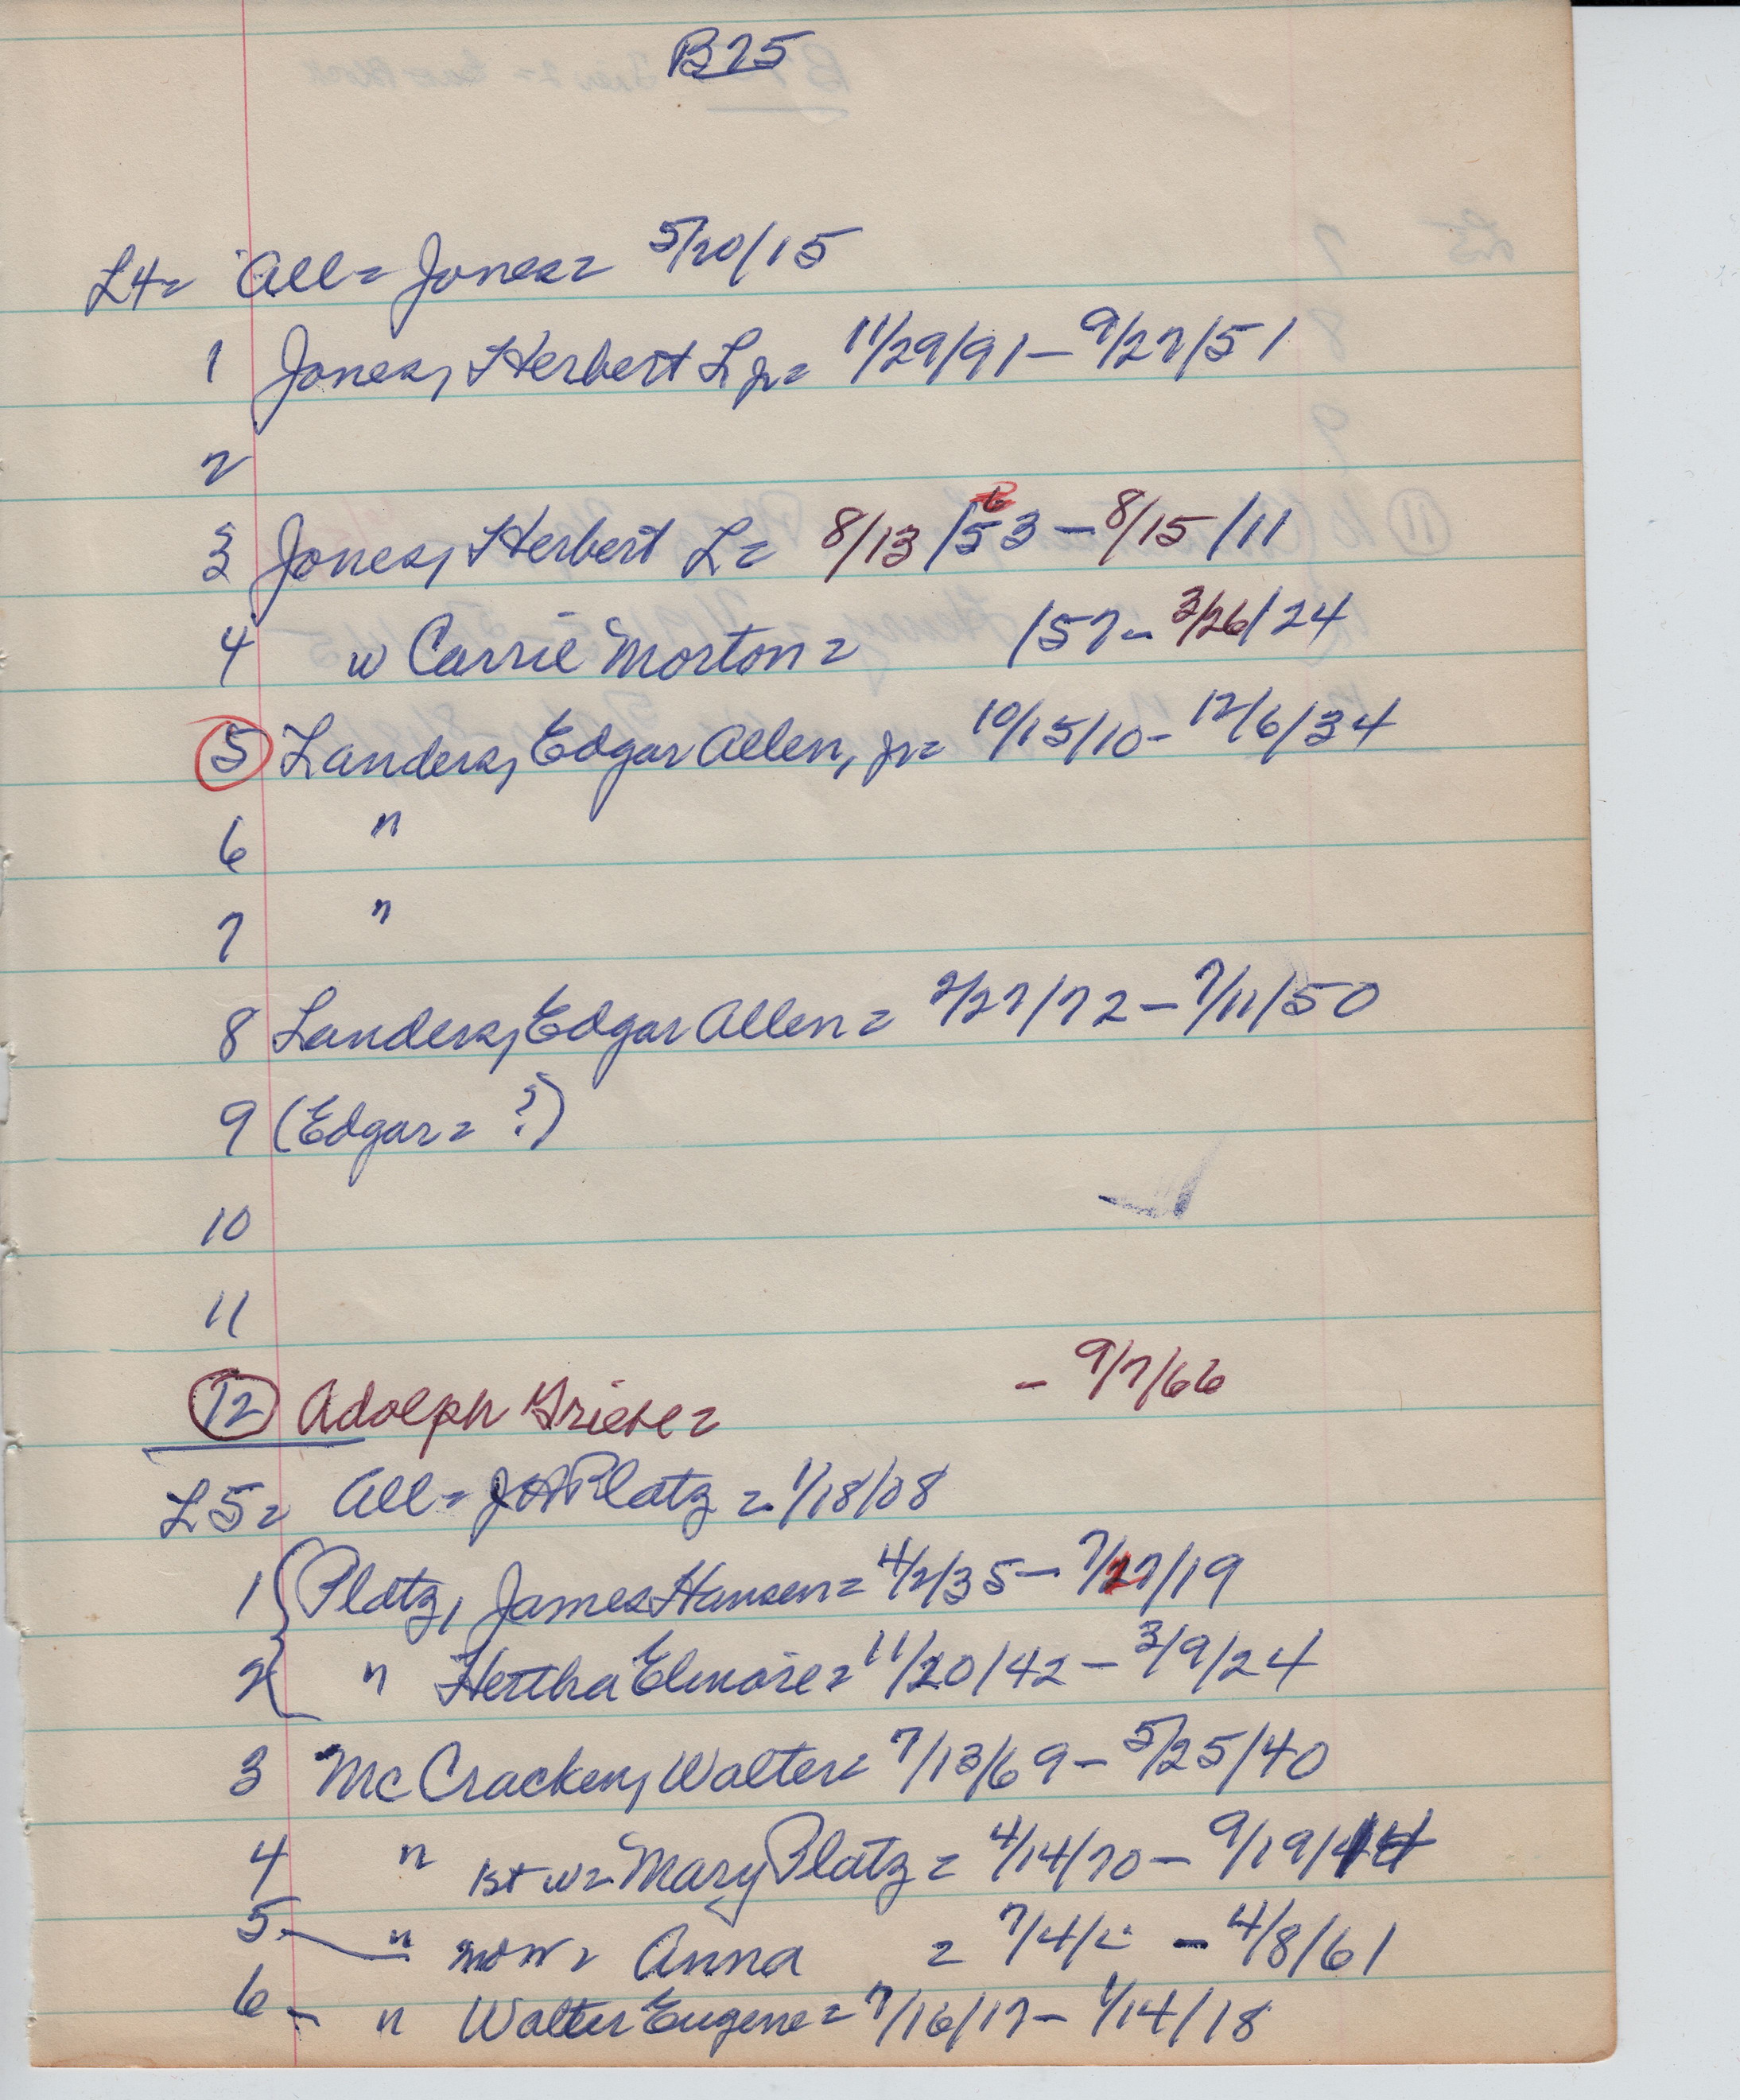 B75
L4= All= Jones= 5/20/15
1 Jones, Herbert L jr= 11/29/91 - 9/27/51
2
6
3 Jones, Herbert L= 8/13/53 - 8/15/11
4 w Carrie Morton= /57 - 3/26/24
5 Landers, Edgar Allen, jr= 10/15/10 - 12/6/34
6 "
7 "
8 Landers, Edgar Allen= 2/27/72 - 7/11/50
9 (Edgar= ?)
10
11
12 Adolph Griese= - 9/7/66
L5= All= J H Platz= 1/18/08
1 Platz, James Hansen= 4/2/35 - 7/27/19
2 " Hertha Elmore= 11/20/42 - 3/9/24
3 McCracken, Walter= 7/13/69 - 5/25/40
4 " 1st w= Mary Platz= 4/14/70 - 9/19/14
5 " Anna = 7/4/ - 4/8/61
6 - " Walter Eugene= 7/16/17 - 1/14/18